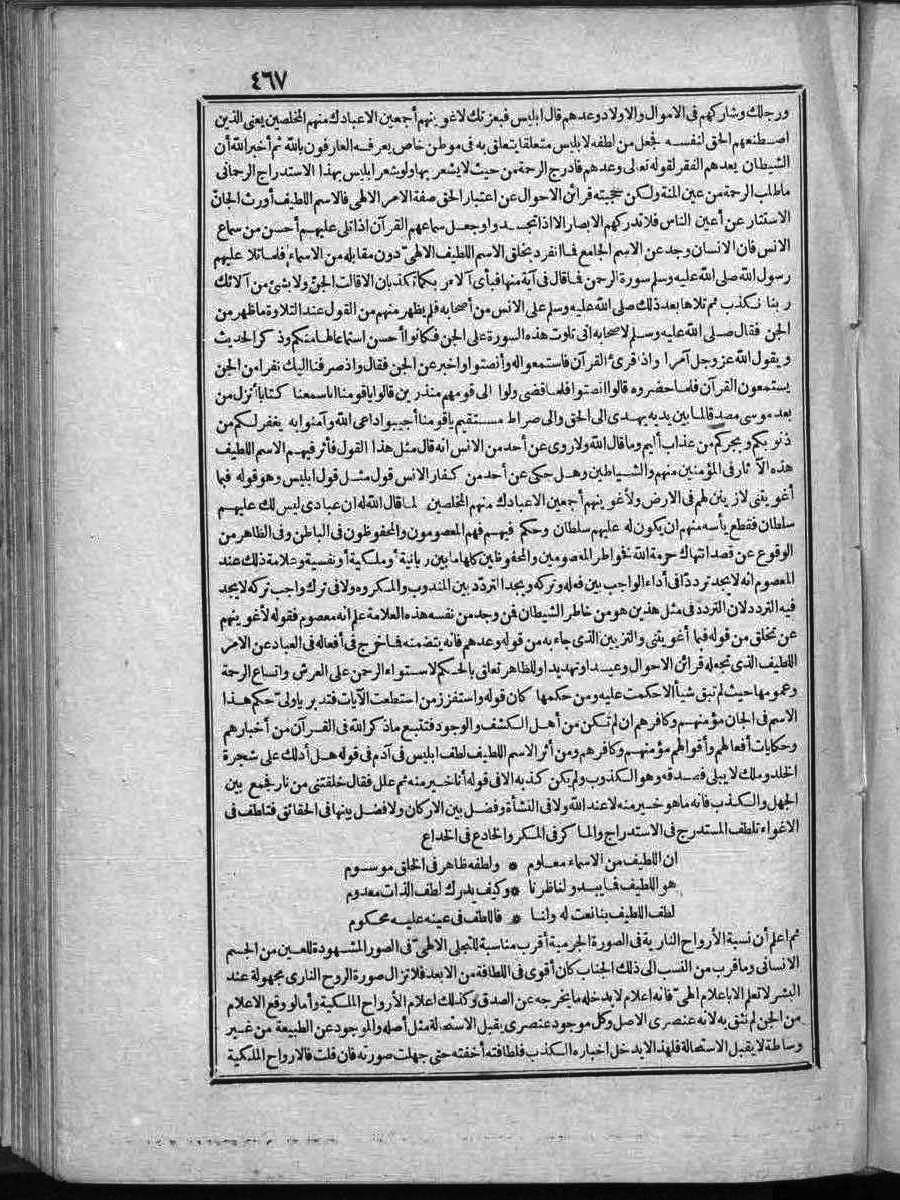 ٤٦٧
ورجلك وشاركهم فى الاموال والاولاد وعدهم قال ابليس فبعزتك لاغوينهم أجمعين الاعبادك منهم المخلصين يعنى الذين
اصطنعهم الحق لنفسه فجعل من لطفه لابليس متعلقا يتعلق به فى موطن خاص يعرفه العارفون بالله ثم أخبر الله أن
الشيطان يعدهم الفقر لقوله تعالى وعدهم فادرج الرحمة من حيث لا يشعر بها ولو يشعر ابليس بهذا الاستدراج الرحمانى
ما طلب الرحمة من عين المنة ولكن حجبته قرائن الاحوال عن اعتبار الحق صفة الامر الالهى فالاسم اللطيف أورث الجان
الاستتار عن أعين الناس فلا تدركهم الابصار الا اذا تجسدوا وجعل سماعهم القرآن اذا تلى عليهم أحسن من سماع
الانس فان الانسان وجد عن الاسم الجامع فما انفرد بخلق الاسم اللطيف الالهى دون مقابله من الاسماء فلما تلا عليهم
رسول الله صلى الله عليه وسلم سورة الرحمن فما قال فى آية منها فبأى آلاء ربكما تكذبان الا قالت الجن ولا بشئ من آلائك
ربنا نكذب ثم تلاها بعد ذلك صلى الله عليه وسلم على الانس من أصحابه فلم يظهر منهم من القول عند التلاوة ما ظهر من
الجن فقال صلى الله عليه وسلم لاصحابه انى تلوت هذه السورة على الجن فكانوا أحسن استماعا لها منكم وذكر الحديث
ويقول الله عز وجل آمرا واذا قرئ القرآن فاستمعوا له وأنصتوا واخبر عن الجن فقال واذ صرفنا اليك نفرا من الجن
يستمعون القرآن فلما حضروه قالوا انصتوا فلما قضى ولوا الى قومهم منذرين قالوا يا قومنا انا سمعنا كتابا أنزل من
بعد موسى مصدقا لما بين يديه يهدى الى الحق والى صراط مستقيم يا قومنا أجيبوا داعى الله وآمنوا به يغفر لكم من
ذنوبكم ويجركم من عذاب أليم وما قال الله ولا روى عن أحد من الانس انه قال مثل هذا القول فأثر فيهم الاسم اللطيف
هذه الآثار فى المؤمنين منهم والشياطين وهل حكى عن أحد من كفار الانس قول مثل قول ابليس وهو قوله فبما
أغويتنى لازينن لهم فى الارض ولأغوينهم أجمعين الاعبادك منهم المخلصين لما قال الله له ان عبادى ليس لك عليهم
سلطان فقطع يأسه منهم ان يكون له عليهم سلطان وحكم فيهم فهم المعصومون والمحفوظون فى الباطن وفى الظاهر من
الوقوع عن قصد انتهاك حرمة الله فخواطر المعصومين والمحفوظين كلها ما بين ربانية أو ملكية أو نفسية وعلامة ذلك عند
المعصوم انه لا يجد ترددا فى أداء الواجب بين فعله وتركه ويجد التردد بين المندوب والمكروه ولا فى ترك واجب تركه لا يجد
فيه التردد لان التردد فى مثل هذين هو من خاطر الشيطان فمن وجد من نفسه هذه العلامة علم انه معصوم فقوله لأغوينهم
عن تخلق من قوله فبما أغويتنى والتزيين الذى جاء به من قوله وعدهم فانه يتضمنه فما خرج فى أفعاله فى العباد عن الامر
اللطيف الذى تجعله قرائن الاحوال وعيدا وتهديدا وللظاهر تعلق بالحكم لاستواء الرحمن على العرش واتساع الرحمة
وعمومها حيث لم تبق شيأ الا حكمت عليه ومن حكمها كان قوله واستفزز من استطعت الآيات فتدبر ياولى حكم هذا
الاسم فى الجان مؤمنهم وكافرهم ان لم تكن من أهل الكشف والوجود فتتبع ما ذكر الله فى القرآن من أخبارهم
وحكايات أفعالهم وأقوالهم مؤمنهم وكافرهم ومن أثر الاسم اللطيف لطف ابليس فى آدم فى قوله هل أدلك على شجرة
الخلد وملك لا يبلى فصدقه وهو الكذوب ولم يكن كذبه الا فى قوله أنا خير منه ثم علل فقال خلقتنى من نار فجمع بين
الجهل والكذب فانه ما هو خير منه لا عند الله ولا فى النشأة وفضل بين الاركان ولا فضل بينها فى الحقائق فتلطف فى
الاغواء تلطف المستدرج فى الاستدراج والماكر فى المكر والخادع فى الخداع
ان اللطيف من الاسماء معلوم * ولطفه ظاهر فى الخلق موسوم
هو اللطيف فما يبدو لناظرنا * وكيف يدرك لطف الذات معدوم
لطف اللطيف بنا نعت له ولنا * فاللطف فى عينه عليه محكوم
ثم اعلم أن نسبة الأرواح النارية فى الصورة الجرمية أقرب مناسبة للتجلى الالهى فى الصور المشهودة للعين من الجسم
الانسانى وما قرب من النسب الى ذلك الجناب كان أقوى فى اللطافة من الابعد فلا تزال صورة الروح النارى مجهولة عند
البشر لا تعلم الا باعلام الهى فانه اعلام لا يدخله ما يخرجه عن الصدق وكذلك اعلام الأرواح الملكية وأما لو وقع الاعلام
من الجن لم نثق به لانه عنصرى الاصل وكل موجود عنصرى يقبل الاستحالة مثل أصله والموجود عن الطبيعة من غير
وساطة لا يقبل الاستحالة فلهذا لا يدخل اخباره الكذب فلطافته أخفته حتى جهلت صورته فان قلت فالارواح الملكية